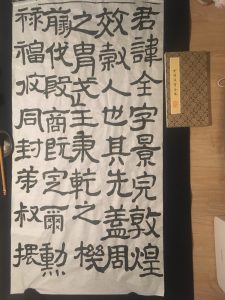 君諱全字景完敦煌
效穀人也其先蓋周
之胄武王秉乾之機
翦伐殷商既定爾勳
祿福攸同封弟叔振